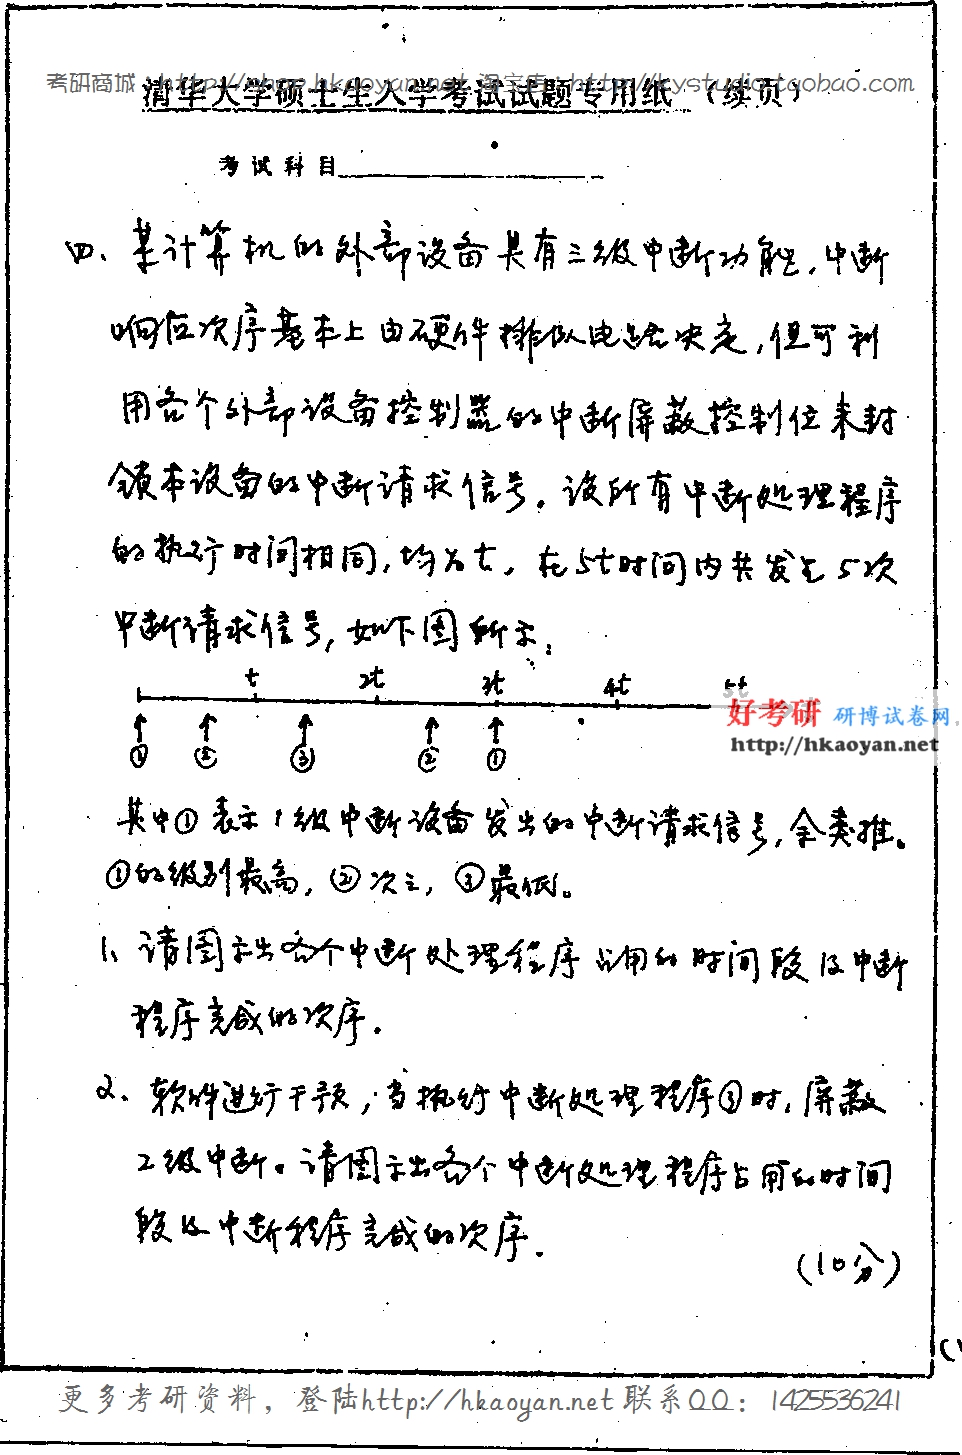 考研商城：http://shop.hkaoyan.net 淘宝店：http://kystudio.taobao.com
清华大学硕士生入学考试试题专用纸（续页）
考试科目
四、某计算机的外部设备具有三级中断功能，中断
响应次序基本上由硬件排队电路决定，但可利
用各个外部设备控制器的中断屏蔽控制位来封
锁本设备的中断请求信号。设所有中断处理程序
的执行时间相同，均为t，在5t时间内共发生5次
中断请求信号，如下图所示：
t 2t 3t 4t 5t
① ② ③ ② ①
好考研 研博试卷网
http://hkaoyan.net
其中①表示1级中断设备发出的中断请求信号，余类推。
①的级别最高，②次之，③最低。
1、请图示出各个中断处理程序占用的时间段及中断
程序完成的次序。
2、软件进行干预，当执行中断处理程序③时，屏蔽
2级中断。请图示出各个中断处理程序占用的时间
段及中断程序完成的次序。
(10分)
更多考研资料，登陆http://hkaoyan.net 联系QQ：1425536241